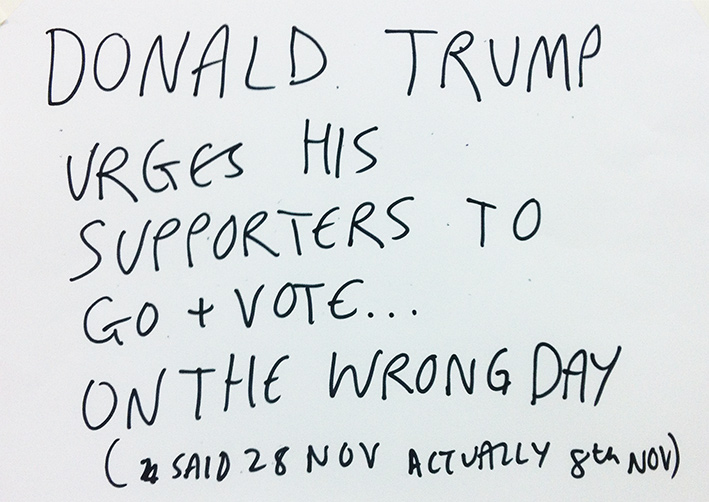 DONALD TRUMP
URGES HIS
SUPPORTERS TO
GO + VOTE...
ON THE WRONG DAY
( SAID 28 NOV ACTUALLY 8th NOV)